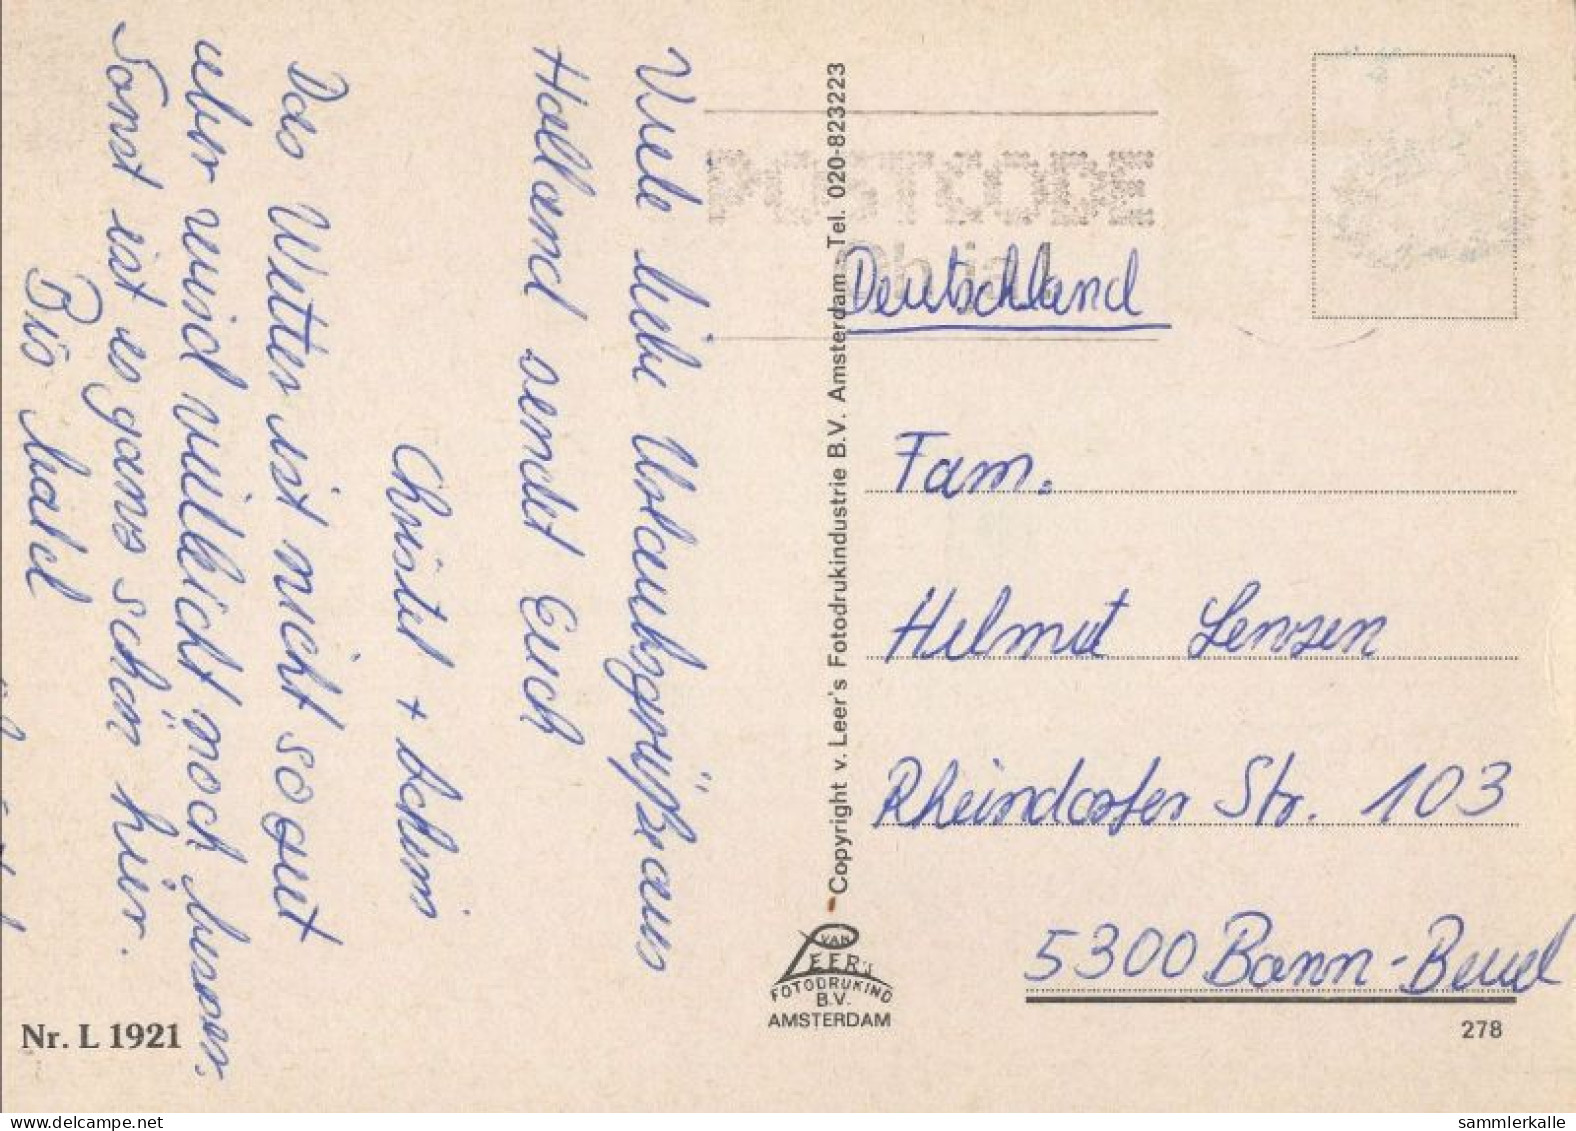 Viele liebe Urlaubsgrüße aus
Holland sendet Euch
Christel + Achim
Das Wetter ist nicht so gut
aber wird vielleicht noch besser.
Sonst ist es ganz schön hier.
Bis bald
Copyright v. Leer's Fotodrukindustrie B.V. Amsterdam - Tel. 020-823223
VAN
LEER'S
FOTODRUKIND
B.V.
AMSTERDAM
Nr. L 1921
POSTCODE
Deutschland
Fam.
Helmut Lenzen
Rheindorfer Str. 103
5300 Bonn-Beuel
278
sammlerkalle